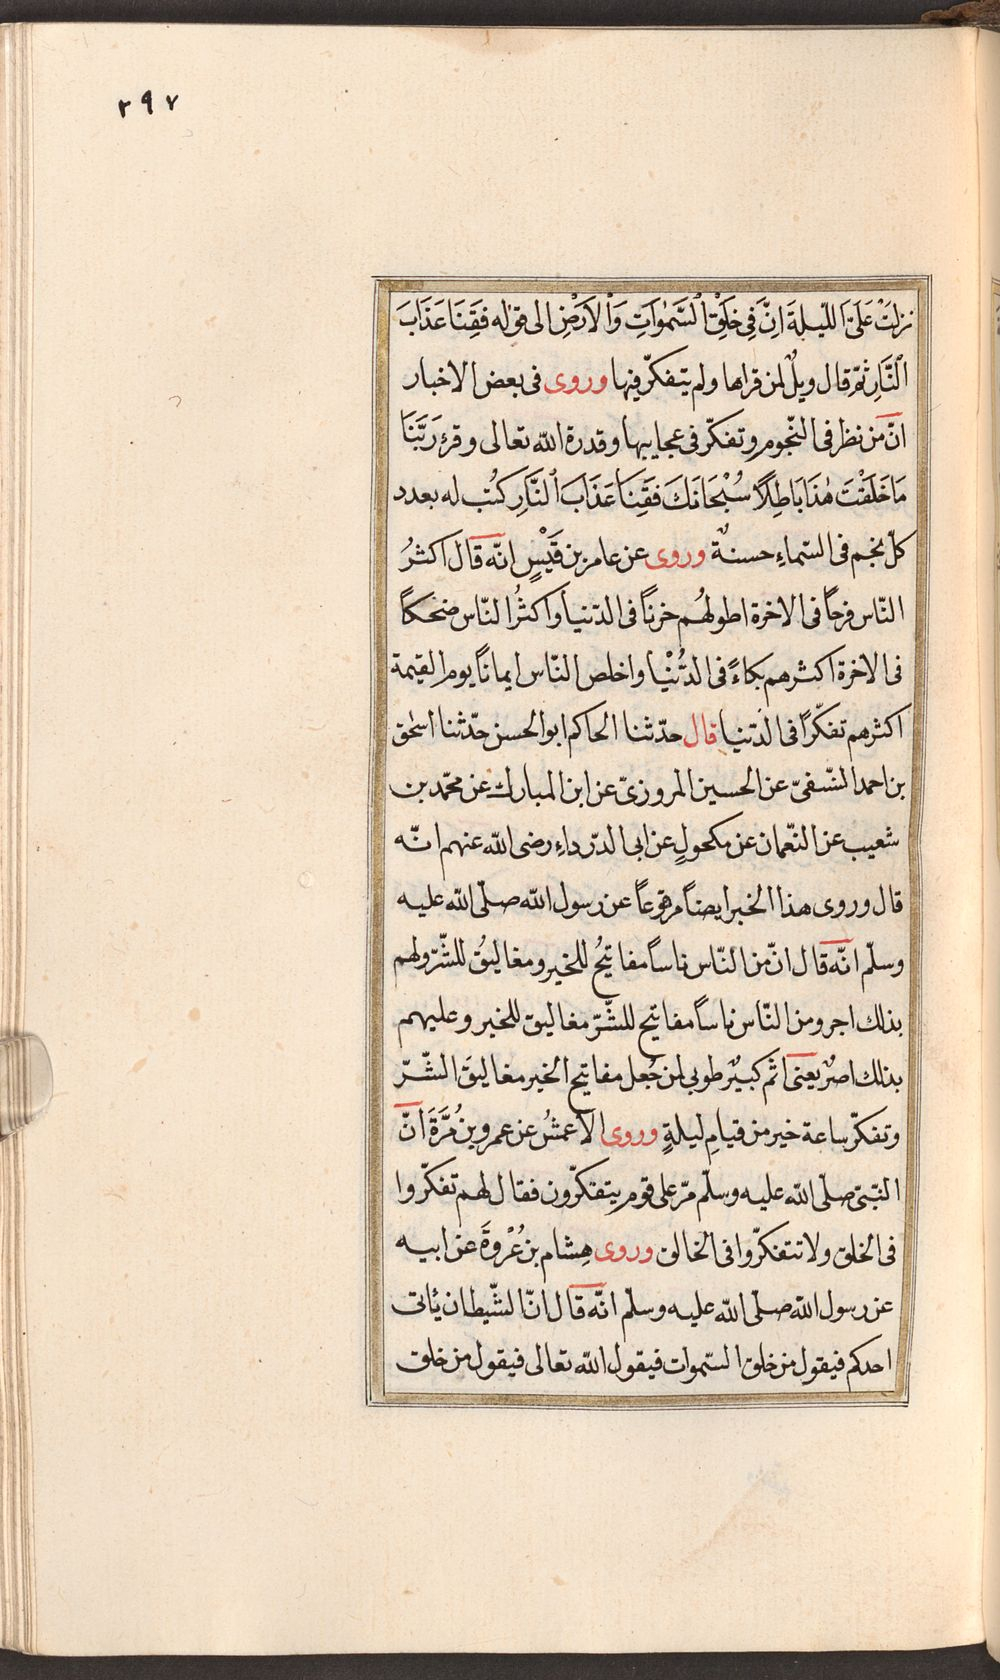 ٢٩٧
نزلَتْ عَلَىَّ اللّيلةَ اِنَّ فِى خَلْقِ ٱلسَّمٰوَاتِ وَٱلْاَرْضِ الى قوله فَقِنَا عَذَابَ
ٱلنَّارِ ثمّ قال ويلٌ لمن قراها ولم يتفكّر فيها وروى فى بعض الاخبار
انّ من نظر فى النّجوم وتفكّر فى عجايبها وقدرة الله تعالى وقرء رَبَّنَا
مَا خَلَقْتَ هٰذَا بَاطِلًا سُبْحَانَكَ فَقِنَا عَذَابَ ٱلنَّارِ كُتب له بعدد
كلّ نجم فى السّماءِ حسنةٌ وروى عن عامر بن قَيْسٍ انّه قال اكثرُ
النّاس فرحًا فى الاخرة اطولهُم حزنًا فى الدّنيا واكثرُ النّاس ضحكًا
فى الاخرة اكثرهم بكاءً فى الدُّنْيا واخلص النّاس ايمانًا يوم القيمة
اكثرهم تفكّرًا فى الدّنيا قال حدّثنا الحاكم ابو الحسن حدّثنا اسحٰق
بن احمد النّسفىّ عن الحسين المروزىّ عن ابن المبارك عن محمّد بن
شعيب عن النّعمان عن مكحولٍ عن ابى الدّرداءِ رضى الله عنهم انّه
قال وروى هذا الخبر ايضًا مرفوعًا عن رسول الله صلّى الله عليه
وسلّم انّه قال انّ من النّاس ناسًا مفاتيحُ للخير ومغاليقُ للشّرّ ولهم
بذلك اجر ومن النّاس ناسًا مفاتيح للشّرّ مغاليق للخير وعليهم
بذلك اصرٌ يعنى اثم كبيرٌ طوبى لمن جُعل مفاتيح الخير مغاليقَ الشّرّ
وتفكّر ساعة خير من قيامِ ليلةٍ وروى الاعمشُ عن عمرو بن مُرَّةَ انّ
النّبىّ صلّى الله عليه وسلّم مرّ على قوم يتفكّرون فقال لهم تفكّروا
فى الخلق ولا تتفكّروا فى الخالق وروى هِشام بن عُرْوةَ عن ابيه
عن رسول الله صلّى الله عليه وسلّم انّه قال انّ الشّيطان يُاتى
احدكم فيقول من خلق السّموات فيقول الله تعالى فيقول من خلق